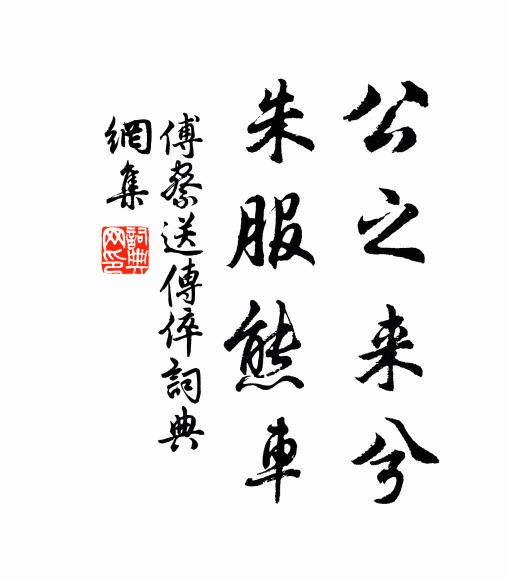 公之来兮
朱服熊車
傅察送傅倅詞典
網集
詞典网印